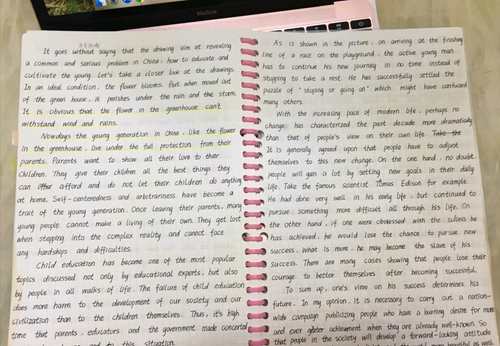 MacBook
It goes without saying that the drawing aim at revealing
a common and serious problem in China: how to educate and
cultivate the young. Let's take a closer look at the drawings.
In an ideal condition, the flower blooms. But when moved out
of the green house, it perishes under the rain and the storm.
It is obvious that the flower in the greenhouse can't
withstand wind and rains.
Nowdays the young generation in China, like the flower
in the greenhouse, live under the full protection from their
parents. Parents want to show all their love to their
children. They give their children all the best things they
can afford and do not let their children do anything
at home. Self-centeredness and arbitrariness have become a
trait of the young generation. Once leaving their parents, many
young people cannot make a living of their own. They get lost
when stepping into the complex reality and cannot face
any hardships and difficulties.
Child education has become one of the most popular
topics discussed not only by educational experts, but also
by people in all walks of life. The failure of child education
does more harm to the development of our society and our
civilization than to the children themselves. Thus, it's high
time that parents, educators and the government made concerted
to this situation.
As is shown in the picture, on arriving at the finishing
line of a race on the playground, the active young man
has to continue his new journey in no time instead of
stopping to take a rest. He has successfully settled the
puzzle of "stoping or going on" which might have confused
many others.
With the increasing pace of modern life, perhaps no
change has characterized the past decade more dramatically
than that of people's view on their own life. Take the
It is generally agreed upon that people have to adjust
themselves to this new change. On the one hand, no doubt
people will gain a lot by setting new goals in their daily
life. Take the famous scientist Tomas Edison for example.
He had done very well in his early life, but continued to
pursue something more difficult all through his life. On
the other hand, if one were obsessed with the success he
has achieved, he would lose the chance to pursue new
success, what is more, he may become the slave of his
success. There are many cases showing that people lose their
courage to better themselves after becoming successful.
To sum up, one's view on his success determines his
future. In my opinion, it is necessary to carry out a nation-
wide campaign publicizing people who have a burning desire for more
and ever greater achievement when they are already well-known. So
that people in the society will develop a forward-looking attitude